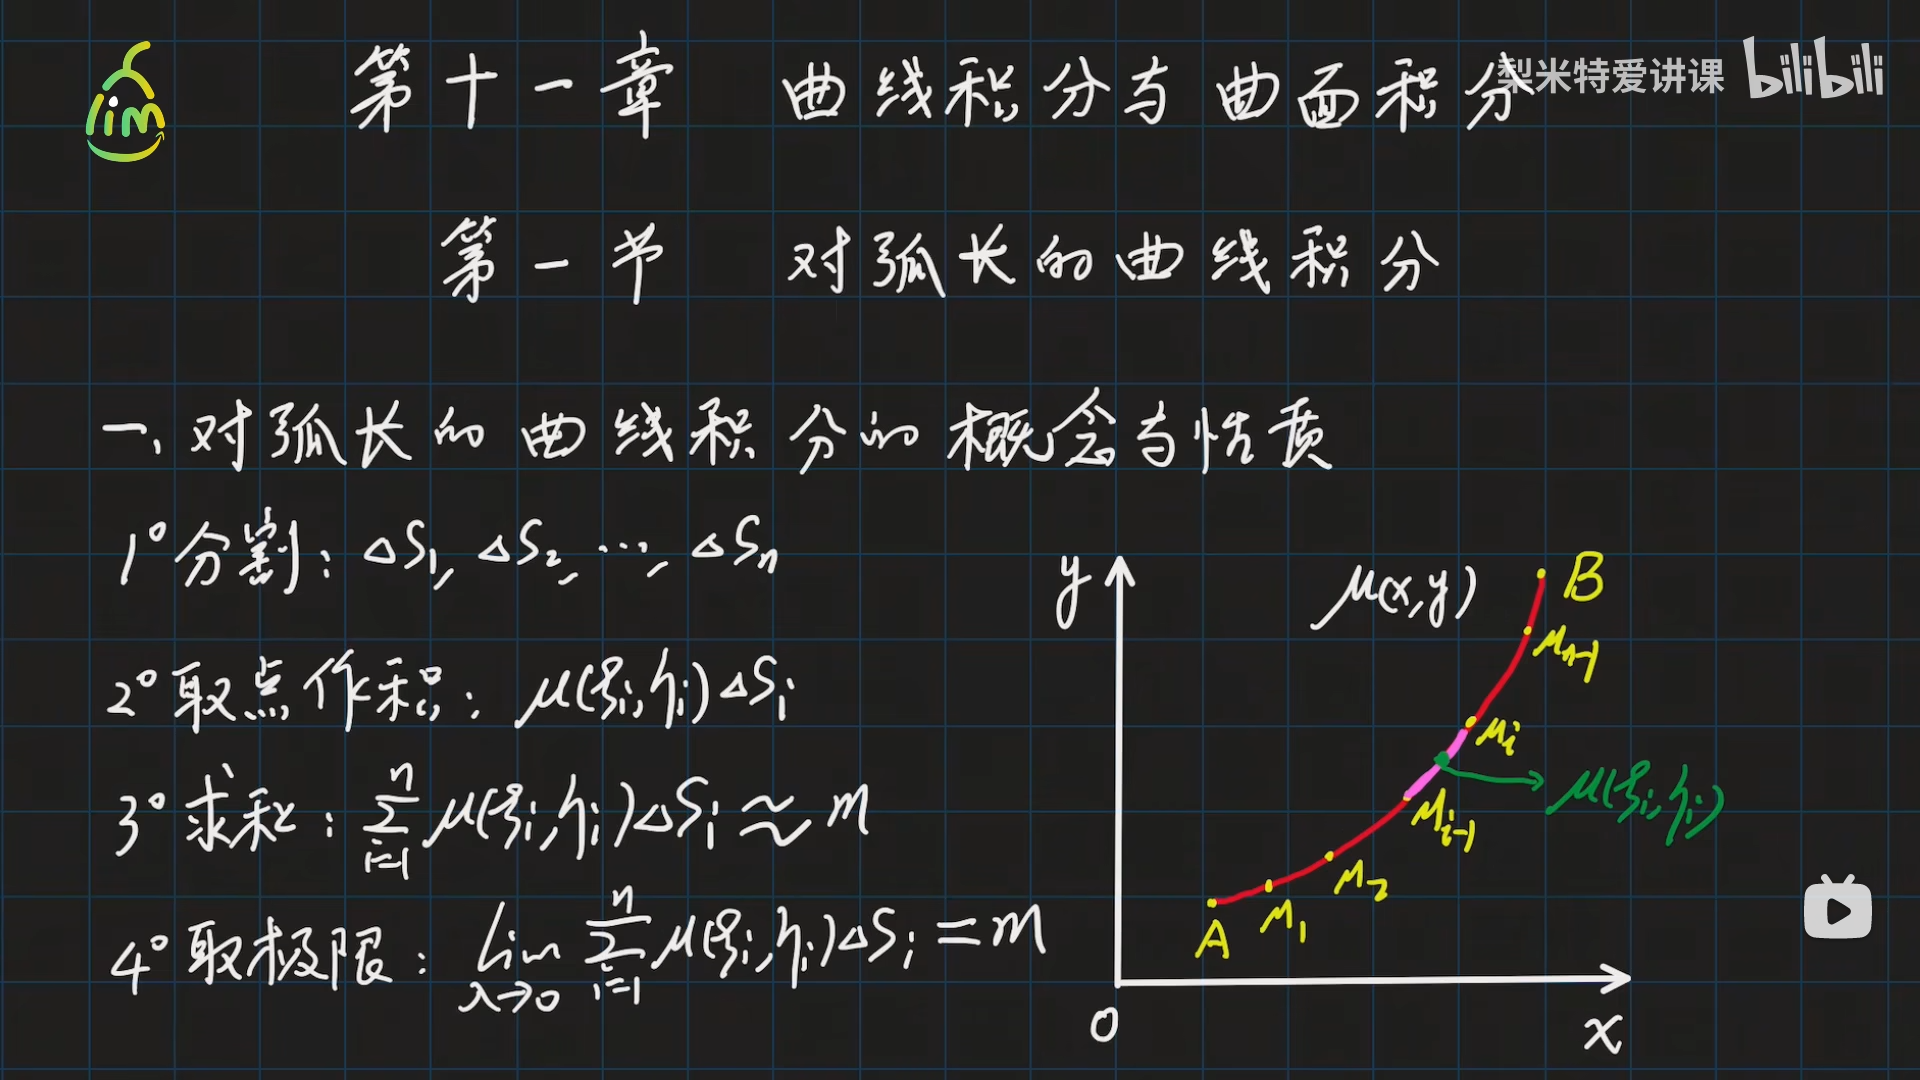 lim
第十一章 曲线积分与曲面积分
梨米特爱讲课 bilibili
第一节 对弧长的曲线积分
一、对弧长的曲线积分的概念与性质
1° 分割: ΔS₁, ΔS₂, ···, ΔSₙ
2° 取点作积: μ(ξᵢ,ηᵢ)ΔSᵢ
3° 求和: ∑ⁿᵢ₌₁ μ(ξᵢ,ηᵢ)ΔSᵢ ≈ m
4° 取极限: lim λ→0 ∑ⁿᵢ₌₁ μ(ξᵢ,ηᵢ)ΔSᵢ = m
y
μ(x,y)
B
Mₙ₋₁
Mᵢ
μ(ξᵢ,ηᵢ)
Mᵢ₋₁
M₂
M₁
A
O
x